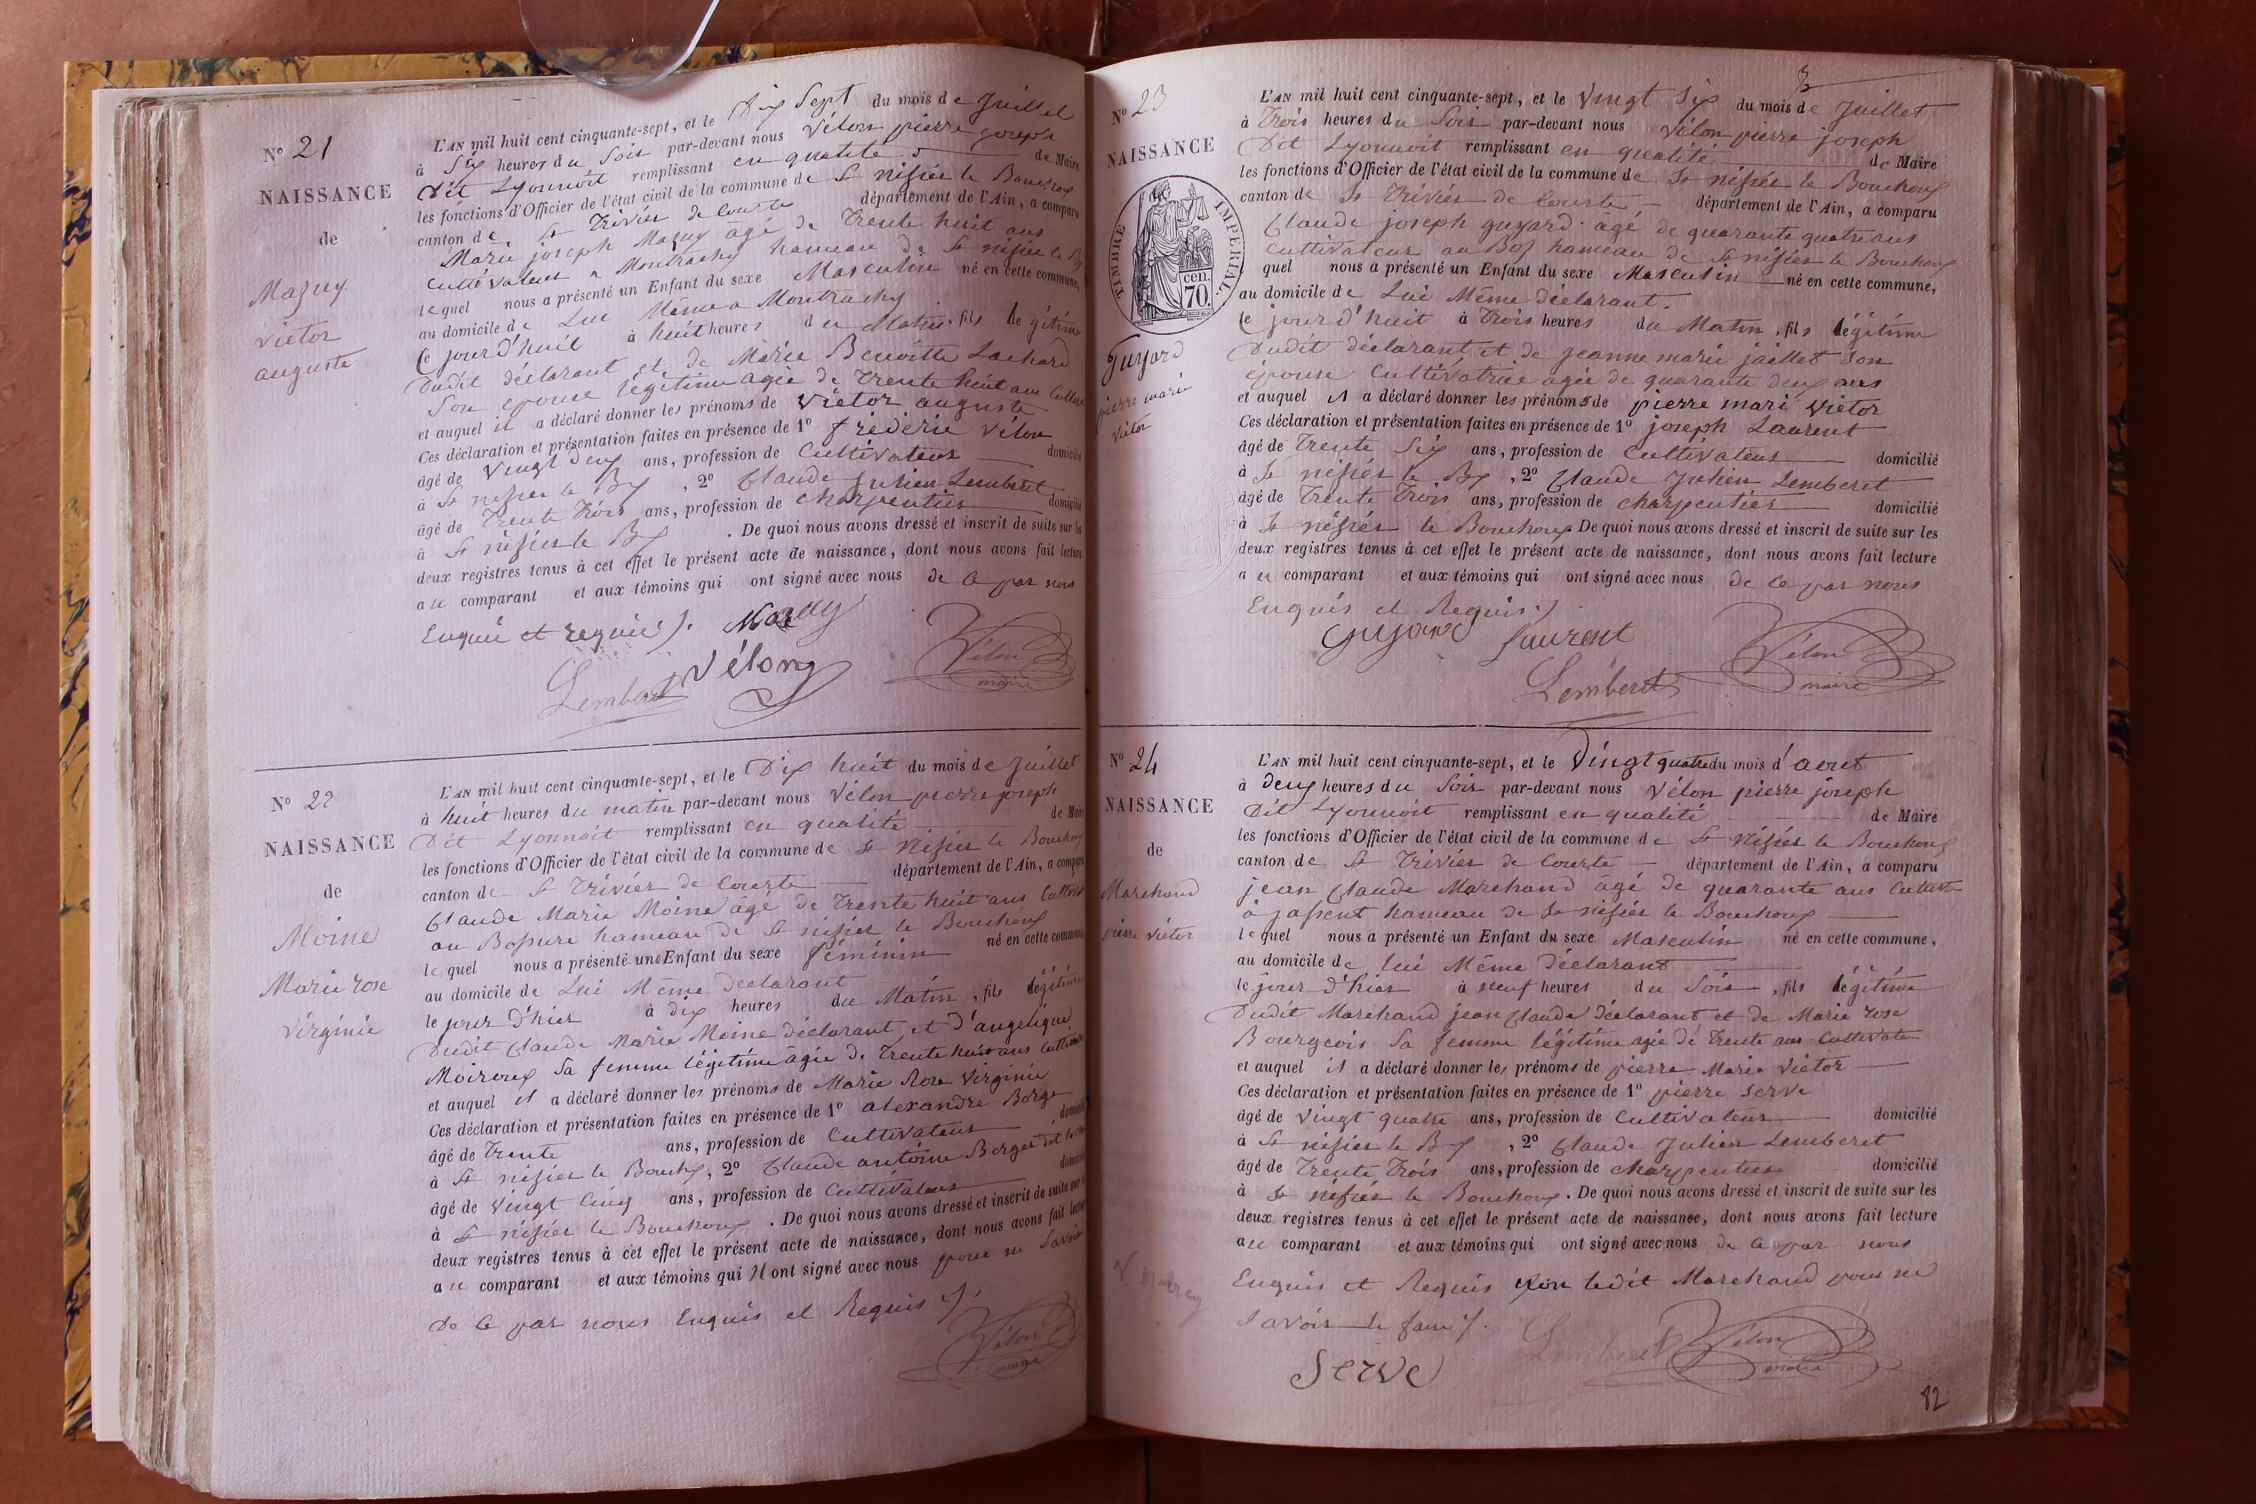 No 21
NAISSANCE
de
Mazuy
victor
auguste
L'AN mil huit cent cinquante-sept, et le Dix Sept du mois de Juillet
à Six heures du Soir par-devant nous Vélon pierre joseph
Dit Lyonnoit remplissant en qualité de Maire
les fonctions d'Officier de l'état civil de la commune de St nisier le Bouchoux
canton de St Trivier de Courte département de l'Ain, a comparu
Marie joseph Mazuy agé de Trente huit ans
Cultivateur a Montrachy hameau de St nisier le Bx
lequel nous a présenté un Enfant du sexe Masculin né en cette commune,
au domicile de Lui Même a Montrachy
Ce jourd'huit à huit heures du Matin, fils légitime
Dudit déclarant et de Marie Benoitte Lachard
Son epouse légitime agée de Trente huit ans Cultivat
et auquel il a déclaré donner les prénoms de Victor auguste
Ces déclaration et présentation faites en présence de 1º frédéric Vélon
âgé de Vingt deux ans, profession de Cultivateur domicilié
à St nisier le Bx, 2º Claude Julien Lemberet
âgé de Trente Trois ans, profession de charpentier domicilié
à St nisier le Bx. De quoi nous avons dressé et inscrit de suite sur les
deux registres tenus à cet effet le présent acte de naissance, dont nous avons fait lecture
au comparant et aux témoins qui ont signé avec nous de Ce par nous
Enquis et requis ).
Mazuy
Lemberet Vélon
Vélon
maire
No 22
NAISSANCE
de
Moine
Marie rose
Virginie
L'AN mil huit cent cinquante-sept, et le Dix huit du mois de Juillet
à huit heures du matin par-devant nous Vélon pierre joseph
Dit Lyonnoit remplissant en qualité de Maire
les fonctions d'Officier de l'état civil de la commune de St Nisier le Bouchoux
canton de St Trivier de Courte département de l'Ain, a comparu
Claude Marie Moine âgé de Trente huit ans Cultivat
au Bassure hameau de St nisier le Bouchoux
le quel nous a présenté une Enfant du sexe féminin né en cette commune
au domicile de Lui Même déclarant
le jour d'hier à dix heures du Matin, fils légitime
Dudit Claude Marie Moine déclarant et d'angelique
Moiroux Sa femme légitime âgée de Trente huit ans Cultivat
et auquel il a déclaré donner les prénoms de Marie Rose Virginie
Ces déclaration et présentation faites en présence de 1º alexandre Borge
âgé de Trente ans, profession de Cultivateur domicilié
à St nisier le Boux, 2º Claude antoine Borge dit
âgé de Vingt Cinq ans, profession de Cultivateur domicilié
à St nisier le Bouchoux. De quoi nous avons dressé et inscrit de suite sur les
deux registres tenus à cet effet le présent acte de naissance, dont nous avons fait lecture
au comparant et aux témoins qui N ont signé avec nous pour ne Savoir
De Ce par nous Enquis et Requis ).
Vélon
maire
No 23
NAISSANCE
TIMBRE IMPERIAL.
70. cen.
Guyard
pierre marie
Victor
L'AN mil huit cent cinquante-sept, et le Vingt Six du mois de Juillet
à Trois heures du Soir par-devant nous Vélon pierre joseph
Dit Lyonnoit remplissant en qualité de Maire
les fonctions d'Officier de l'état civil de la commune de St nisier le Bouchoux
canton de St Trivier de Courte département de l'Ain, a comparu
Claude joseph guyard âgé de quarante quatre ans
Cultivateur au Bos hameau de St nisier le Bouchoux
quel nous a présenté un Enfant du sexe Masculin né en cette commune,
au domicile de Lui Même déclarant.
Ce jourd'huit à Trois heures du Matin, fils légitime
Dudit déclarant et de jeanne marie jaillet Son
épouse Cultivatrice agée de quarante deux ans
et auquel il a déclaré donner les prénoms de pierre mari Victor
Ces déclaration et présentation faites en présence de 1º joseph Laurent
âgé de Trente Six ans, profession de Cultivateur domicilié
à St nisier le Bx, 2º Claude Julien Lemberet
âgé de Trente Trois ans, profession de charpentier domicilié
à St nisier le Bouchoux De quoi nous avons dressé et inscrit de suite sur les
deux registres tenus à cet effet le présent acte de naissance, dont nous avons fait lecture
au comparant et aux témoins qui ont signé avec nous de Ce par nous
Enquis et Requis ).
Guyard Laurent
Lemberet
Vélon
maire
No 24
NAISSANCE
de
Marchand
pierre victor
L'AN mil huit cent cinquante-sept, et le Vingt quatre du mois d'aout
à deux heures du Soir par-devant nous Vélon pierre joseph
Dit Lyonnoit remplissant en qualité de Maire
les fonctions d'Officier de l'état civil de la commune de St Nisier le Bouchoux
canton de St Trivier de Courte département de l'Ain, a comparu
jean Claude Marchand âgé de quarante ans Cultivat
à jassent hameau de St nisier le Bouchoux
lequel nous a présenté un Enfant du sexe Masculin né en cette commune,
au domicile de lui Même déclarant
le jour d'hier à neuf heures du Soir, fils légitime
Dudit Marchand jean Claude déclarant et de Marie rose
Bourgeois Sa femme légitime agée de Trente ans Cultivat
et auquel il a déclaré donner les prénoms de pierre Marie Victor
Ces déclaration et présentation faites en présence de 1º pierre Serve
âgé de Vingt quatre ans, profession de Cultivateur domicilié
à St nisier le Bx, 2º Claude Julien Lemberet
âgé de Trente Trois ans, profession de charpentier domicilié
à St nisier le Bouchoux. De quoi nous avons dressé et inscrit de suite sur les
deux registres tenus à cet effet le présent acte de naissance, dont nous avons fait lecture
au comparant et aux témoins qui ont signé avec nous de Ce par nous
Enquis et Requis Non ledit Marchand pour ne
Savoir le faire ).
Lemberet
Vélon
maire
Serve
82